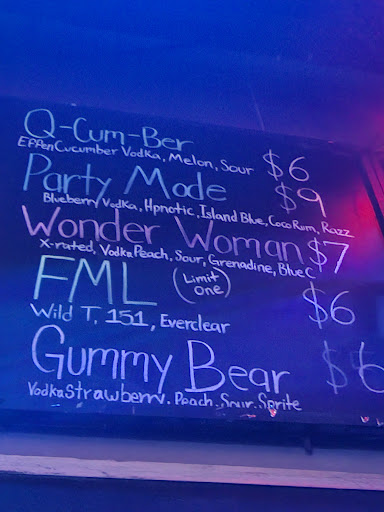 Q-Cum-Ber
Effen Cucumber Vodka, Melon, Sour $6
Party Mode $9
Blueberry Vodka, Hpnotic, Island Blue, Coco Rum, Razz
Wonder Woman $7
X-rated, Vodka Peach, Sour, Grenadine, Blue C
FML (Limit One) $6
Wild T, 151, Everclear
Gummy Bear $6
Vodka Strawberry, Peach, Sour, Sprite